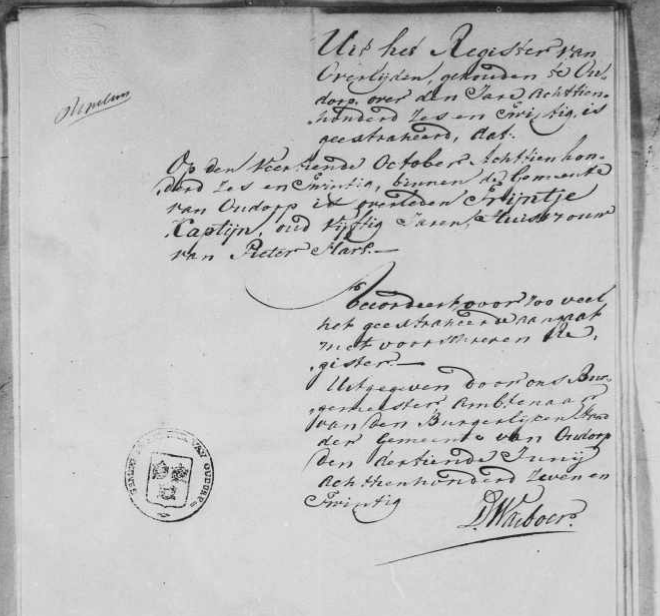 Uit het Register van
Overlijden, gehouden te Ou-
dorp, over den Jare Achttien-
honderd Zes en Twintig, is
geextraheerd, dat.
Op den Veertiende October Achttienhon-
derd Zes en Twintig, binnen de Gemeente
van Oudorp is overleden Trijntje
Kaptijn, oud Vijftig Jaren, Huisvrouw
van Pieter Hart.—
Accordeert voor zoo veel
het geextraheerde aangaat
met voorschreven Re-
gister.—
Uitgegeven door ons Bur-
gemeester Ambtenaar
van den Burgerlijken Staat
der Gemeente van Oudorp
den dertiende Junij
Achttienhonderd Zeven en
Twintig
VAN OUDORP